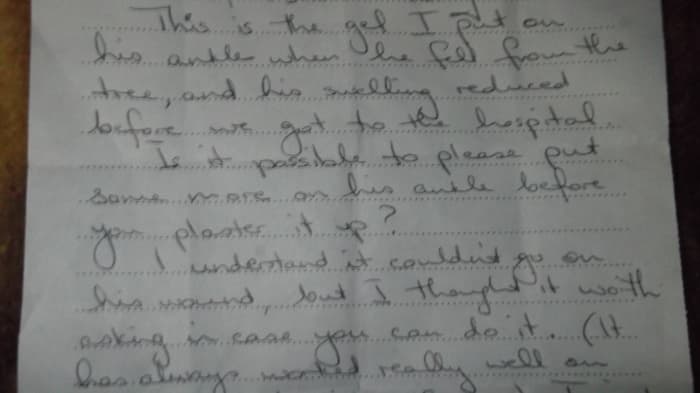 This is the gel I put on
his ankle when he fell from the
tree, and his swelling reduced
before we got to the hospital.
Is it possible to please put
some more on his ankle before
you plaster it up?
I understand it couldn't go on
his wound, but I thought it worth
asking in case you can do it. (It
has always worked really well on